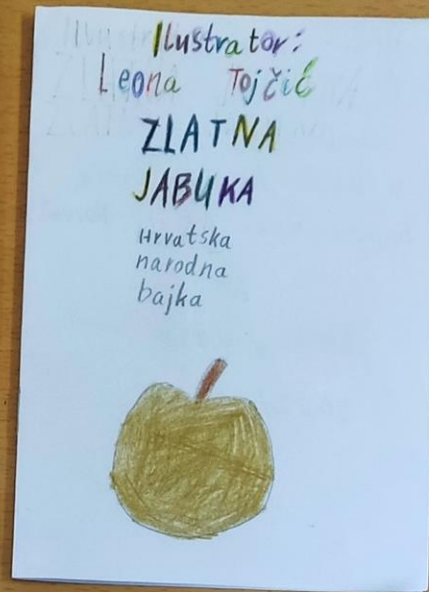 Ilustrator:
Leona Tojčić
ZLATNA
JABUKA
Hrvatska
narodna
bajka